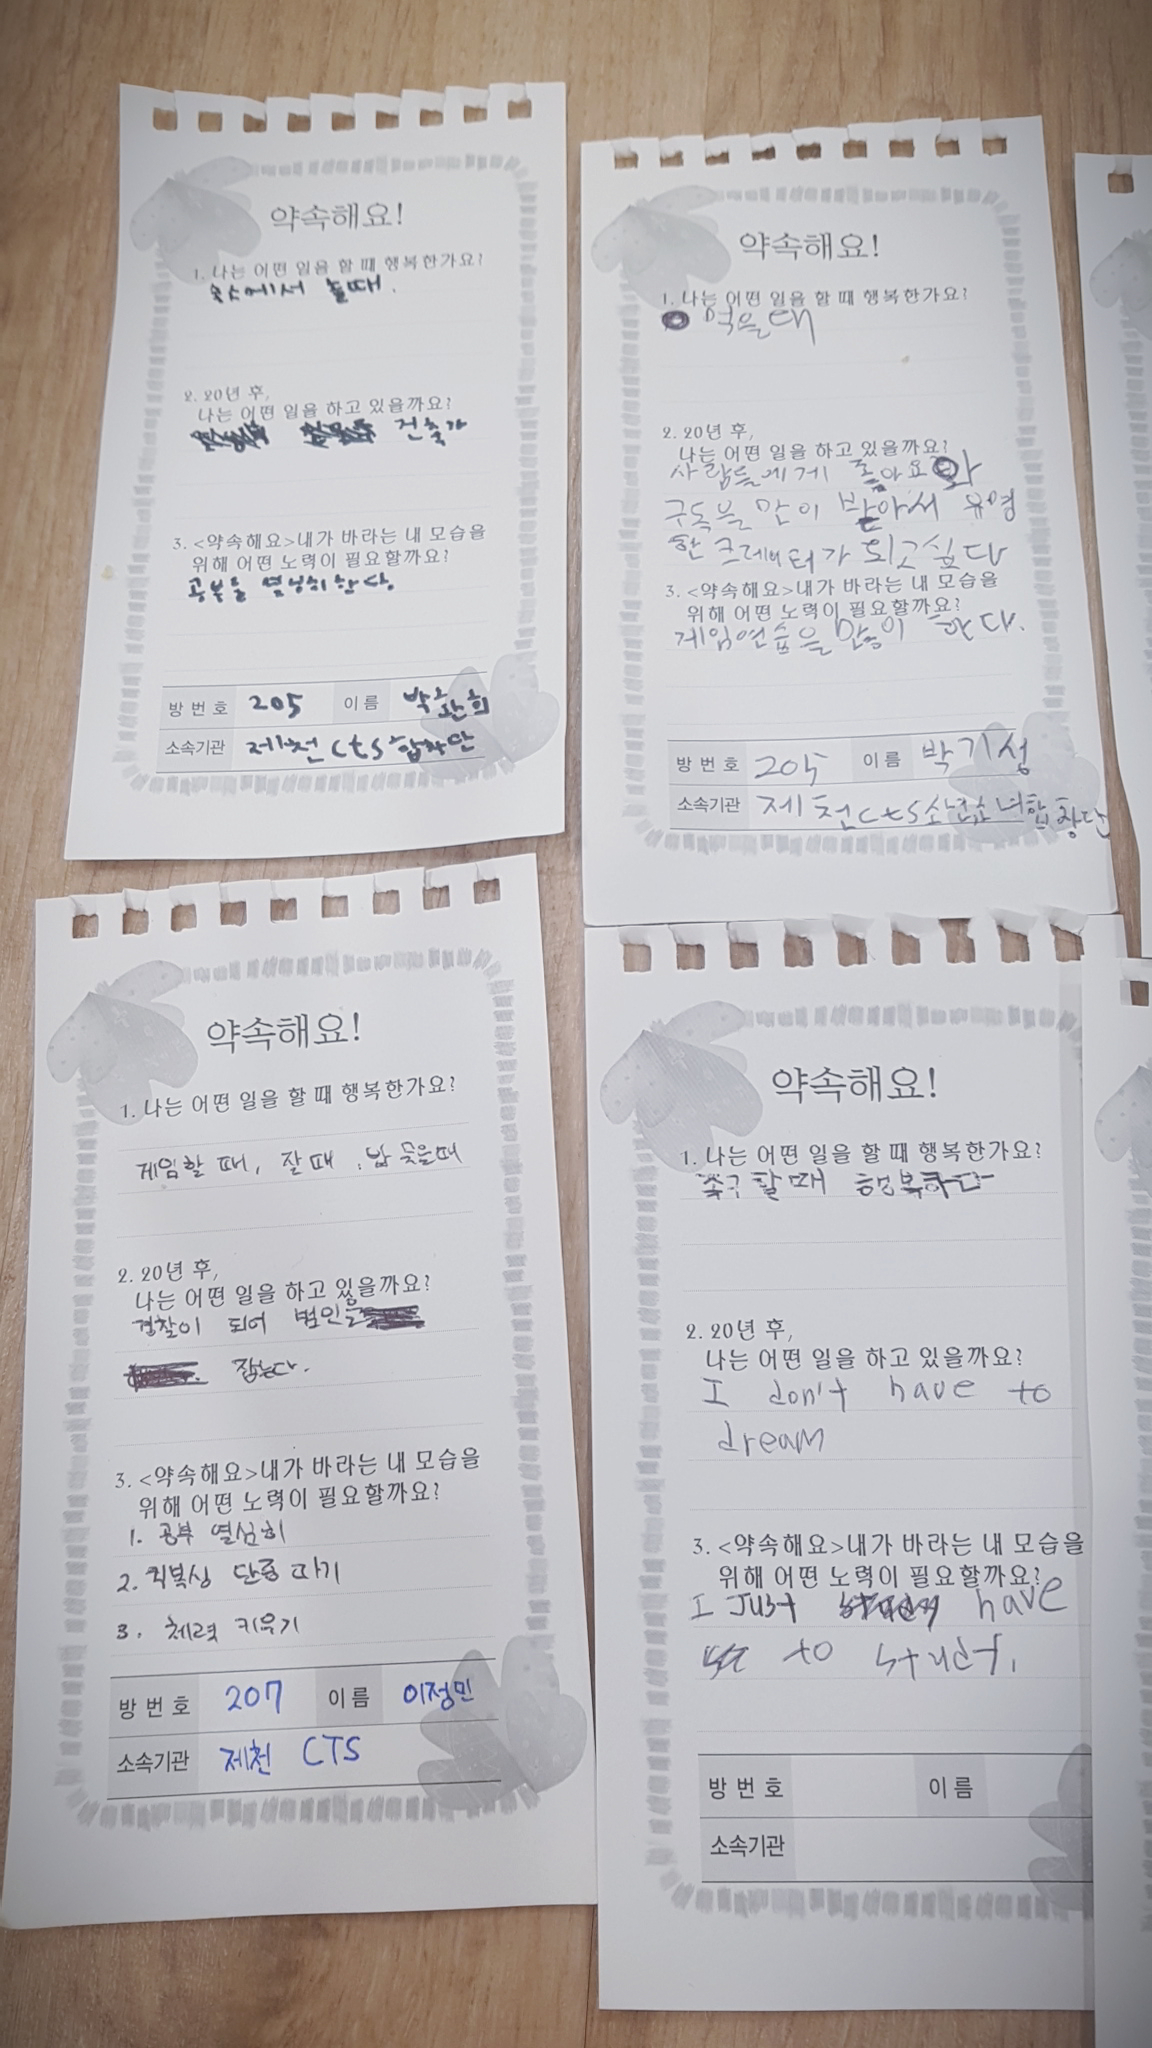 약속해요!
1. 나는 어떤 일을 할 때 행복한가요?
숙소에서 놀때.
2. 20년 후,
나는 어떤 일을 하고 있을까요?
건축가
3. <약속해요>내가 바라는 내 모습을
위해 어떤 노력이 필요할까요?
공부를 열심히 한다
방 번호 205 이름 박환희
소속기관 제천 cts 합창단
약속해요!
1. 나는 어떤 일을 할 때 행복한가요?
먹을때
2. 20년 후,
나는 어떤 일을 하고 있을까요?
사람들에게 좋아요와
구독을 많이 받아서 유명
한 크레에터가 되고싶다
3. <약속해요>내가 바라는 내 모습을
위해 어떤 노력이 필요할까요?
게임연습을 많이 하다.
방 번호 205 이름 박기성
소속기관 제천cts소년소녀합창단
약속해요!
1. 나는 어떤 일을 할 때 행복한가요?
게임할 때, 잘때, 밥 먹을때
2. 20년 후,
나는 어떤 일을 하고 있을까요?
경찰이 되어 범인을
잡는다.
3. <약속해요>내가 바라는 내 모습을
위해 어떤 노력이 필요할까요?
1. 공부 열심히
2. 킥복싱 단증 따기
3. 체력 키우기
방 번호 207 이름 이정민
소속기관 제천 CTS
약속해요!
1. 나는 어떤 일을 할 때 행복한가요?
축구할때 행복하다
2. 20년 후,
나는 어떤 일을 하고 있을까요?
I don't have to
dream
3. <약속해요>내가 바라는 내 모습을
위해 어떤 노력이 필요할까요?
I Just have
to study.
방 번호 이름
소속기관